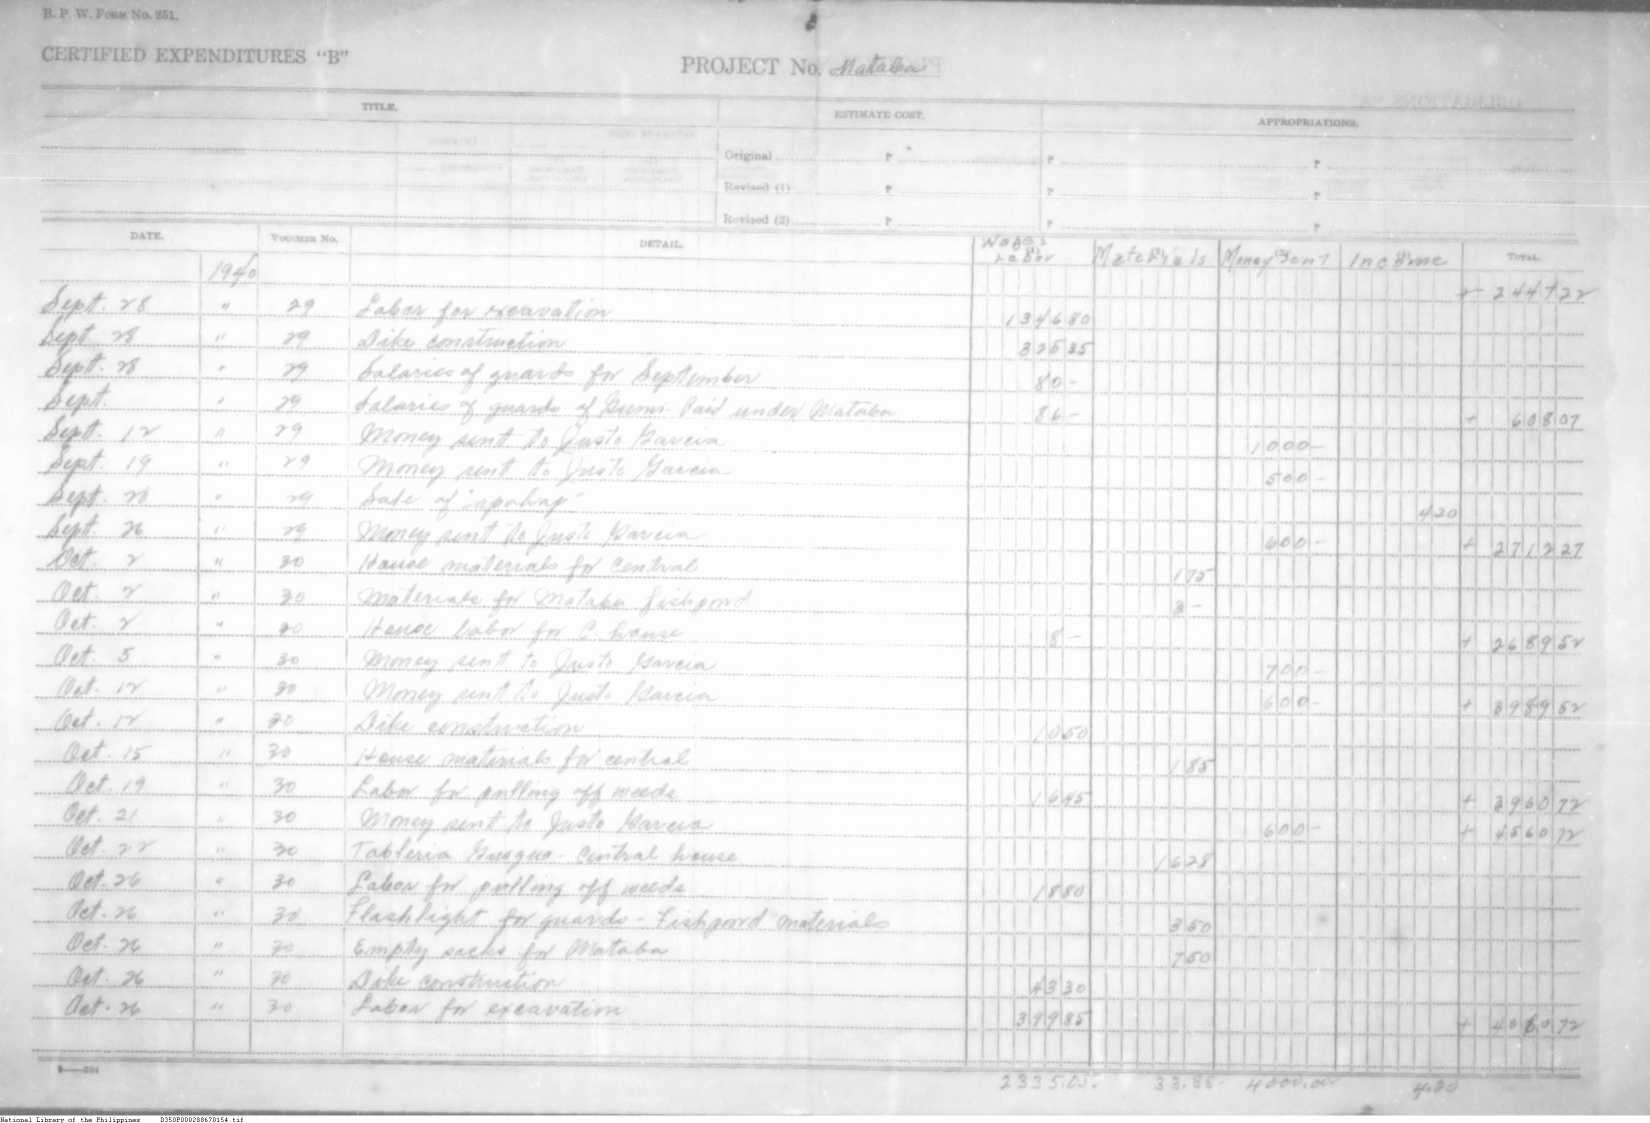 B. P. W. Form No. 251.
CERTIFIED EXPENDITURES "B"
PROJECT No. Mataba
TITLE. ESTIMATE COST. APPROPRIATIONS.
Original ₱ ₱ ₱
Revised (1) ₱ ₱ ₱
Revised (2) ₱ ₱ ₱
DATE. VOUCHER No. DETAIL. Wages Labor Materials Money Sent Income TOTAL
1940 244722
Sept. 28 " 29 Labor for excavation 134680
Sept 28 " 29 Dike construction 32635
Sept. 28 " 29 Salaries of guards for September 80-
Sept. " 29 Salaries of guards of Paid under Mataba 86- + 60807
Sept. 12 " 29 Money sent to Justo Garcia 1000-
Sept. 19 " 29 Money sent to Justo Garcia 500-
Sept. 20 " 29 Sale of 420
Sept 26 " 29 Money sent to Justo Garcia 600- + 271227
Oct. 2 " 30 House materials for central 175
Oct. 2 " 30 Materials for Mataba fishpond 3-
Oct. 2 " 30 House labor for C. house 8- + 268952
Oct. 5 " 30 Money sent to Justo Garcia 700-
Oct. 12 " 30 Money sent to Justo Garcia 600- + 398952
Oct. 12 " 30 Dike construction 1050
Oct. 15 " 30 House materials for central 185
Oct. 19 " 30 Labor for pulling off weeds 1645 + 396072
Oct. 21 " 30 Money sent to Justo Garcia 600- + 456072
Oct. 22 " 30 Tableria Guagua - Central house 1625
Oct. 26 " 30 Labor for pulling off weeds 1880
Oct. 26 " 30 Flashlight for guards - Fishpond materials 350
Oct. 26 " 30 Empty sacks for Mataba 750
Oct. 26 " 30 Dike construction 4330
Oct. 26 " 30 Labor for excavation 39985 + 406072
2335.05 33.85 4000.00 4.20
National Library of the Philippines D350P000288670154.tif